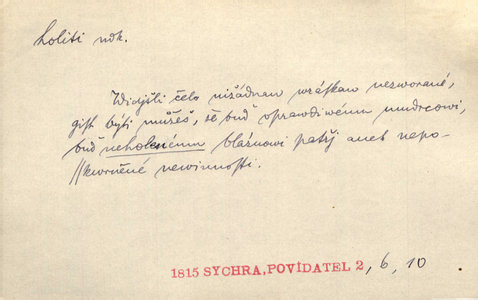 holiti ndk.
Widjšli čelo nižádnau wráskau nezworané,
gist býti můžeš, že buď sprawedliwému mudrcowi,
buď neholenému bláznowi patřj aneb nepo-
skwrněné newinnosti.
1815 SYCHRA, POVÍDATEL 2, 6, 10